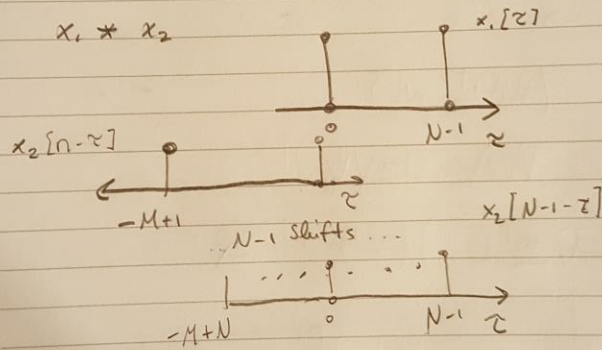 x₁ * x₂
x₁[τ]
0 N-1 τ
x₂[n-τ]
-M+1 τ
x₂[N-1-τ]
..N-1 shifts...
-M+N 0 N-1 τ